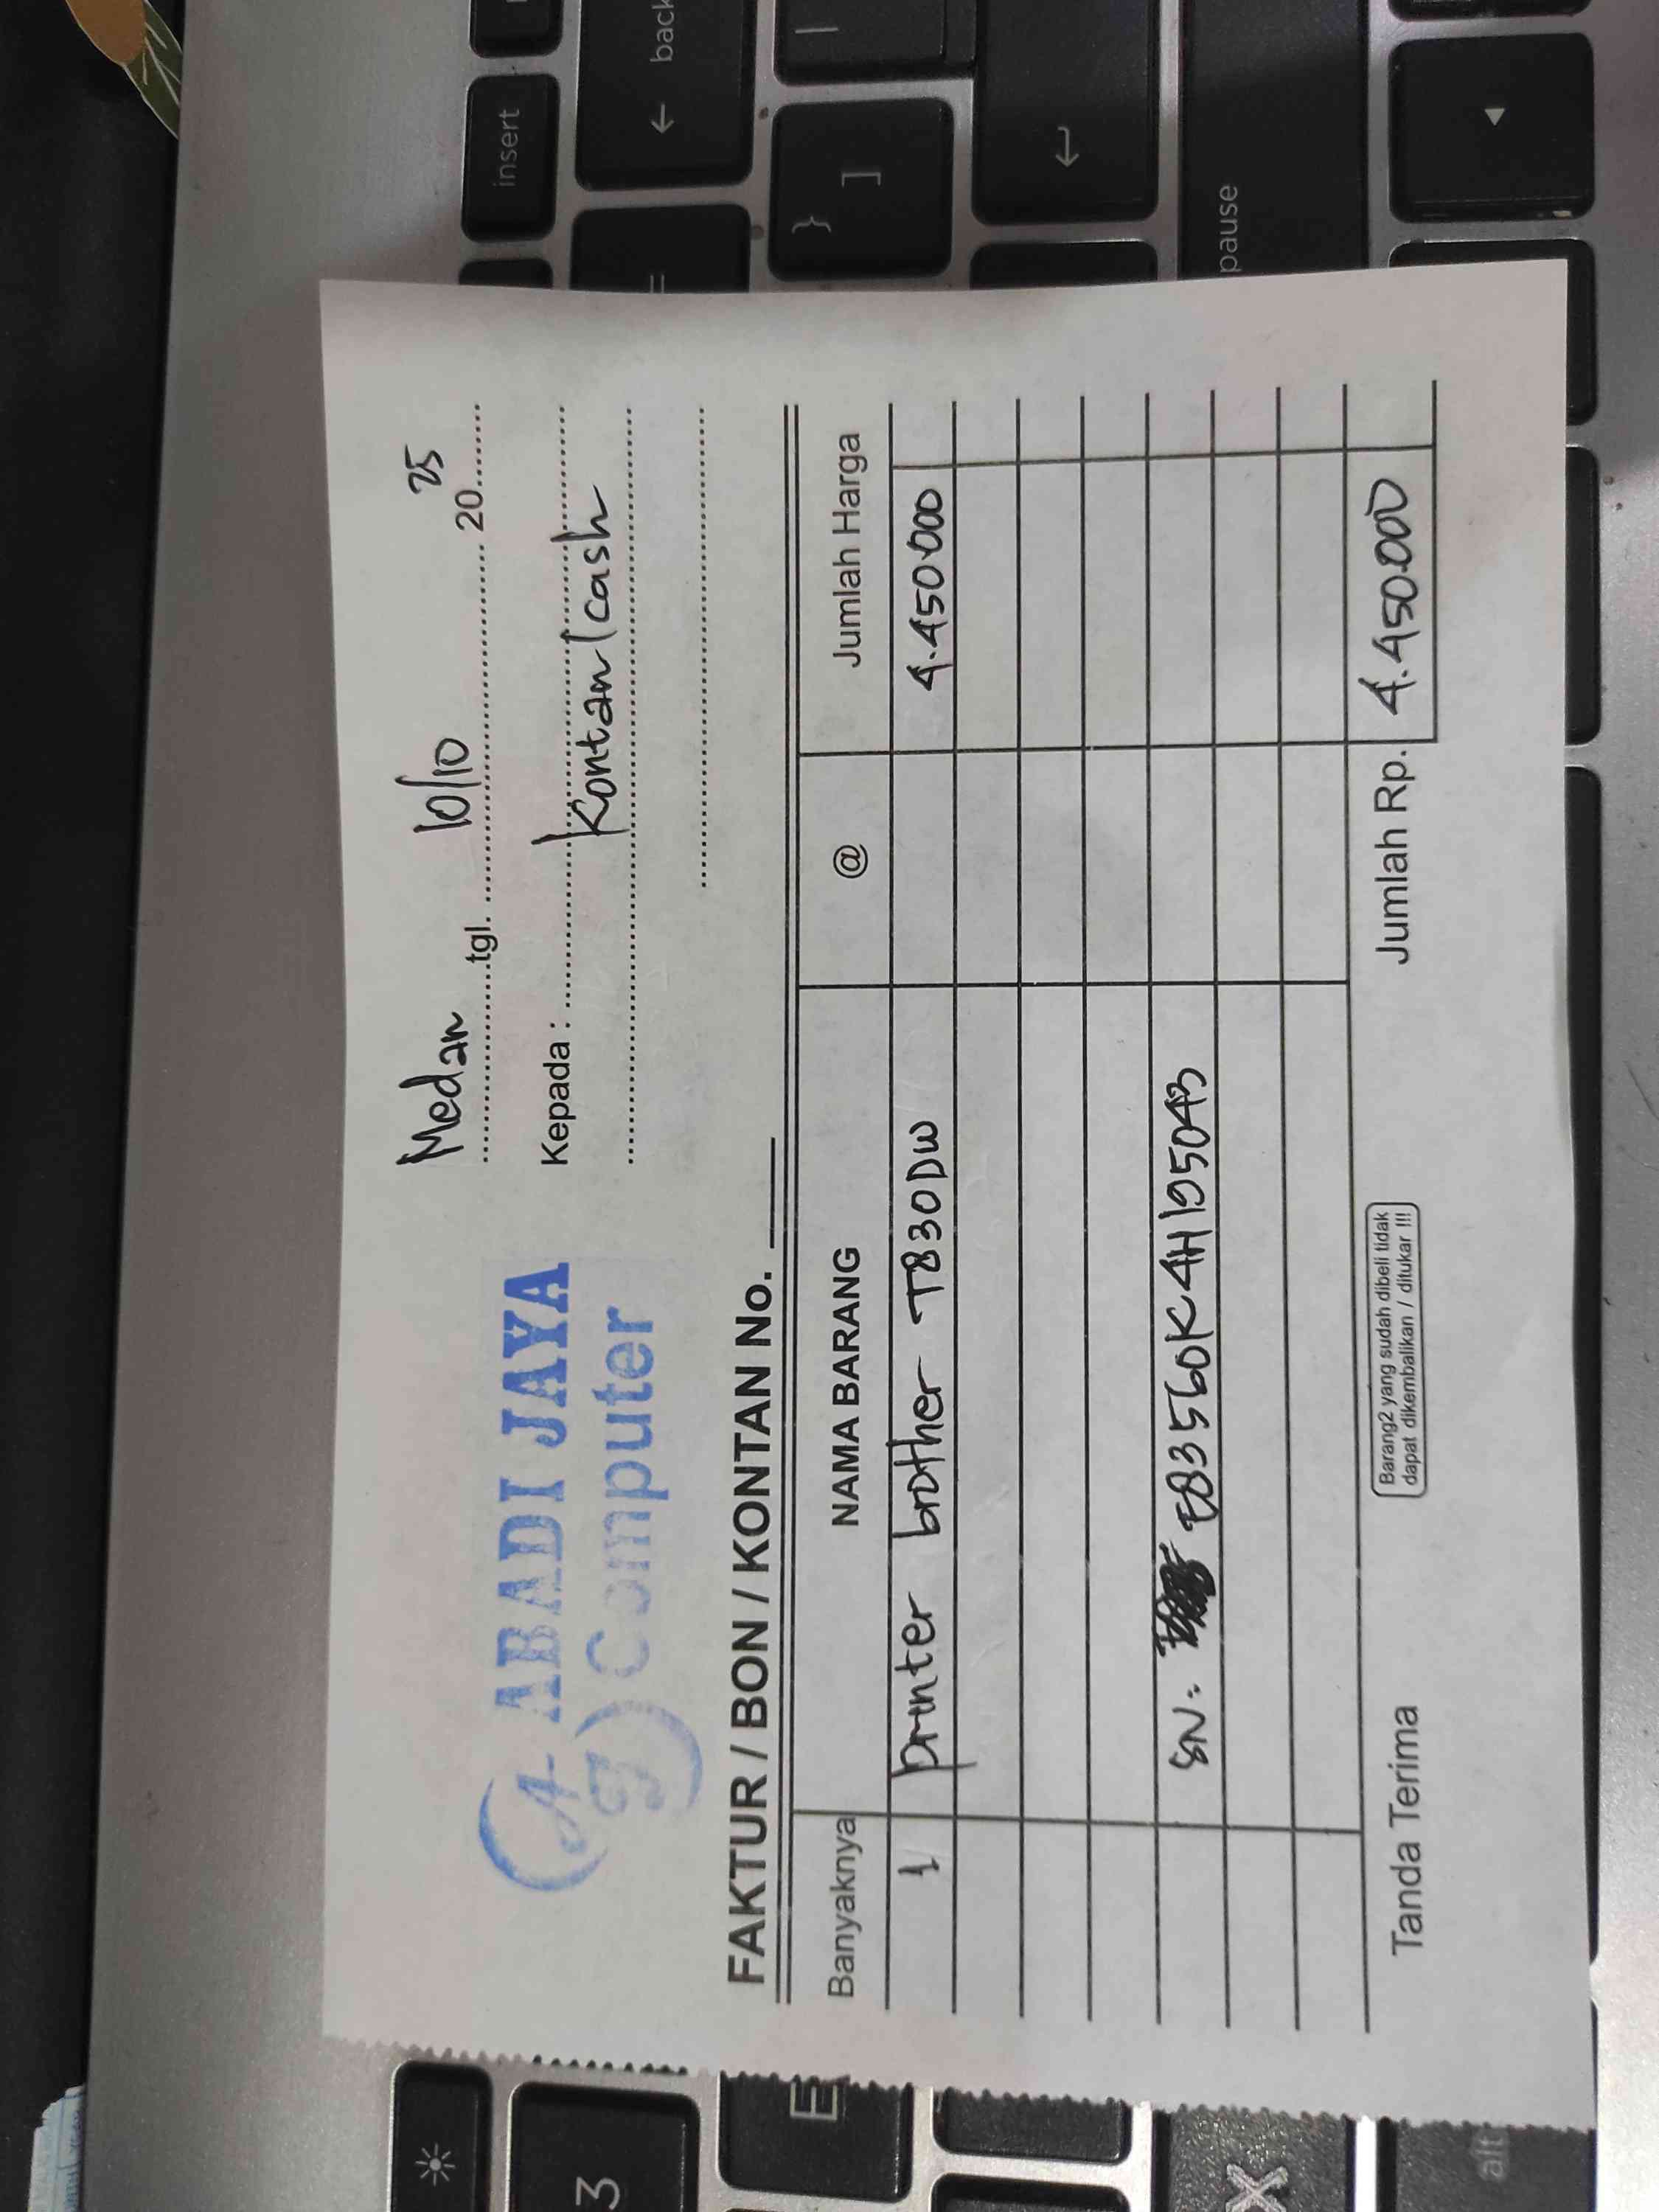 Medan tgl. 10/10 2025
ABADI JAYA
Computer
Kepada : Kontan/Cash
FAKTUR / BON / KONTAN No.
Banyaknya NAMA BARANG @ Jumlah Harga
1 printer brother T830DW 4.450.000
SN. E83560K4H195043
Tanda Terima
Barang2 yang sudah dibeli tidak
dapat dikembalikan / ditukar !!!
Jumlah Rp. 4.450.000
insert
← back
=
} ]
|
↵
pause
◄
3
E
X
alt